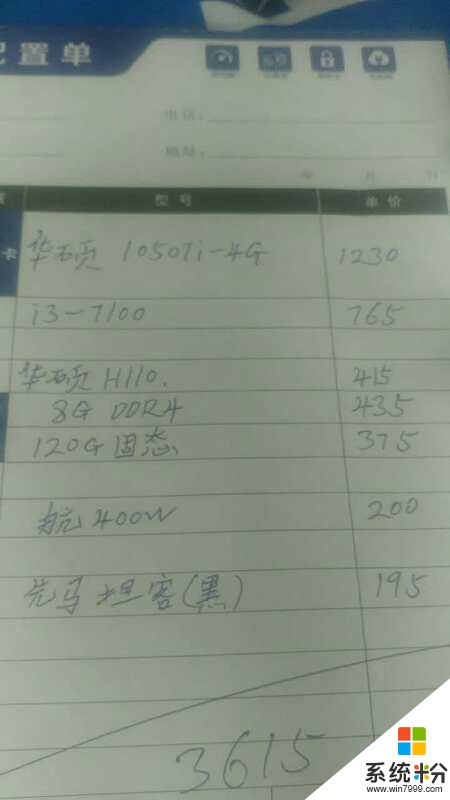 置单
电话:
地址:
年 月 日
型号 单价
卡 华硕 1050Ti-4G 1230
i3-7100 765
华硕 H110. 415
8G DDR4 435
120G 固态 375
航 400W 200
先马 坦客(黑) 195
3615
系统粉
www.win7999.com